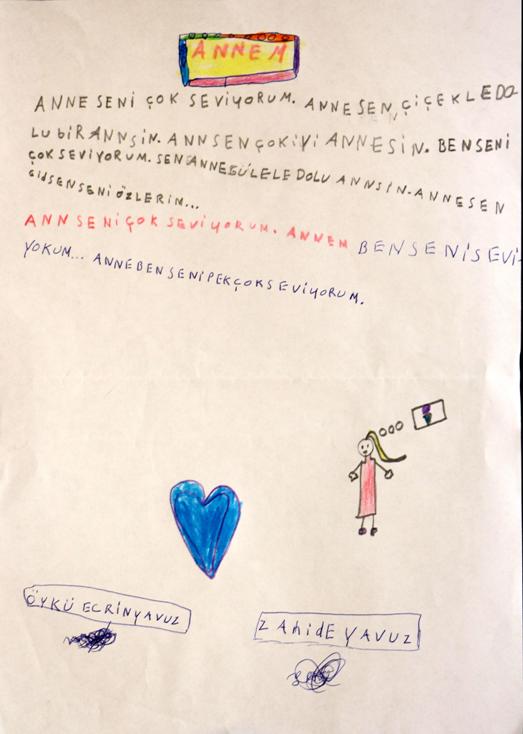 ANNEM
ANNE SENİ ÇOK SEVİYORUM. ANNE SEN, ÇİÇEKLE DO
LU BİR ANNSİN. ANN SEN ÇOK İYİ ANNESİN. BEN SENİ
ÇOK SEVİYORUM. SEN ANNE GÜLELE DOLU ANNSİN. ANNE SEN
GİDSEN SENİ ÖZLERİN...
ANN SENİ ÇOK SEVİYORUM. ANNEM BEN SENİ SEVİ-
YOKUM... ANNE BEN SENİ PEK ÇOK SEVİYORUM.
ÖYKÜ ECRİN YAVUZ
ZAHİDE YAVUZ